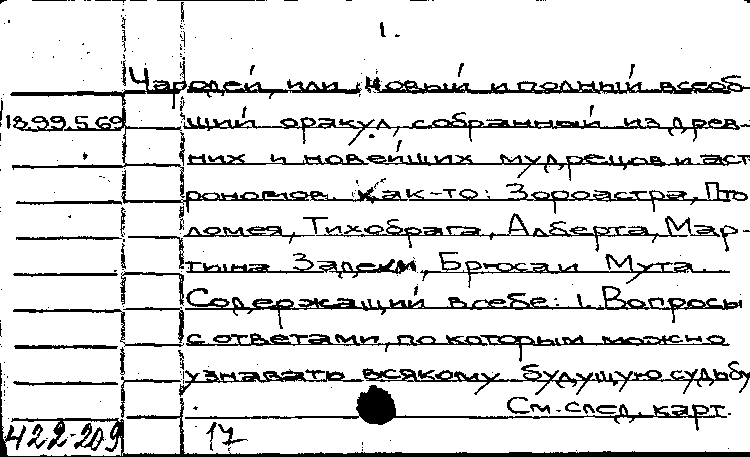 1.
Чародей, или новый и полный всеоб-
18.99.5.69
щий оракул, собранный из древ-
них и новейших мудрецов и аст
рономов. Как-то: Зороастра, Пто
ломея, Тихобрага, Алберта, Мар-
тина Задеки, Брюса и Мута.
Содержащий в себе: 1. Вопросы
с ответами, по которым можно
узнавать всякому будущую судьбу
См. след. карт.
422-209 17